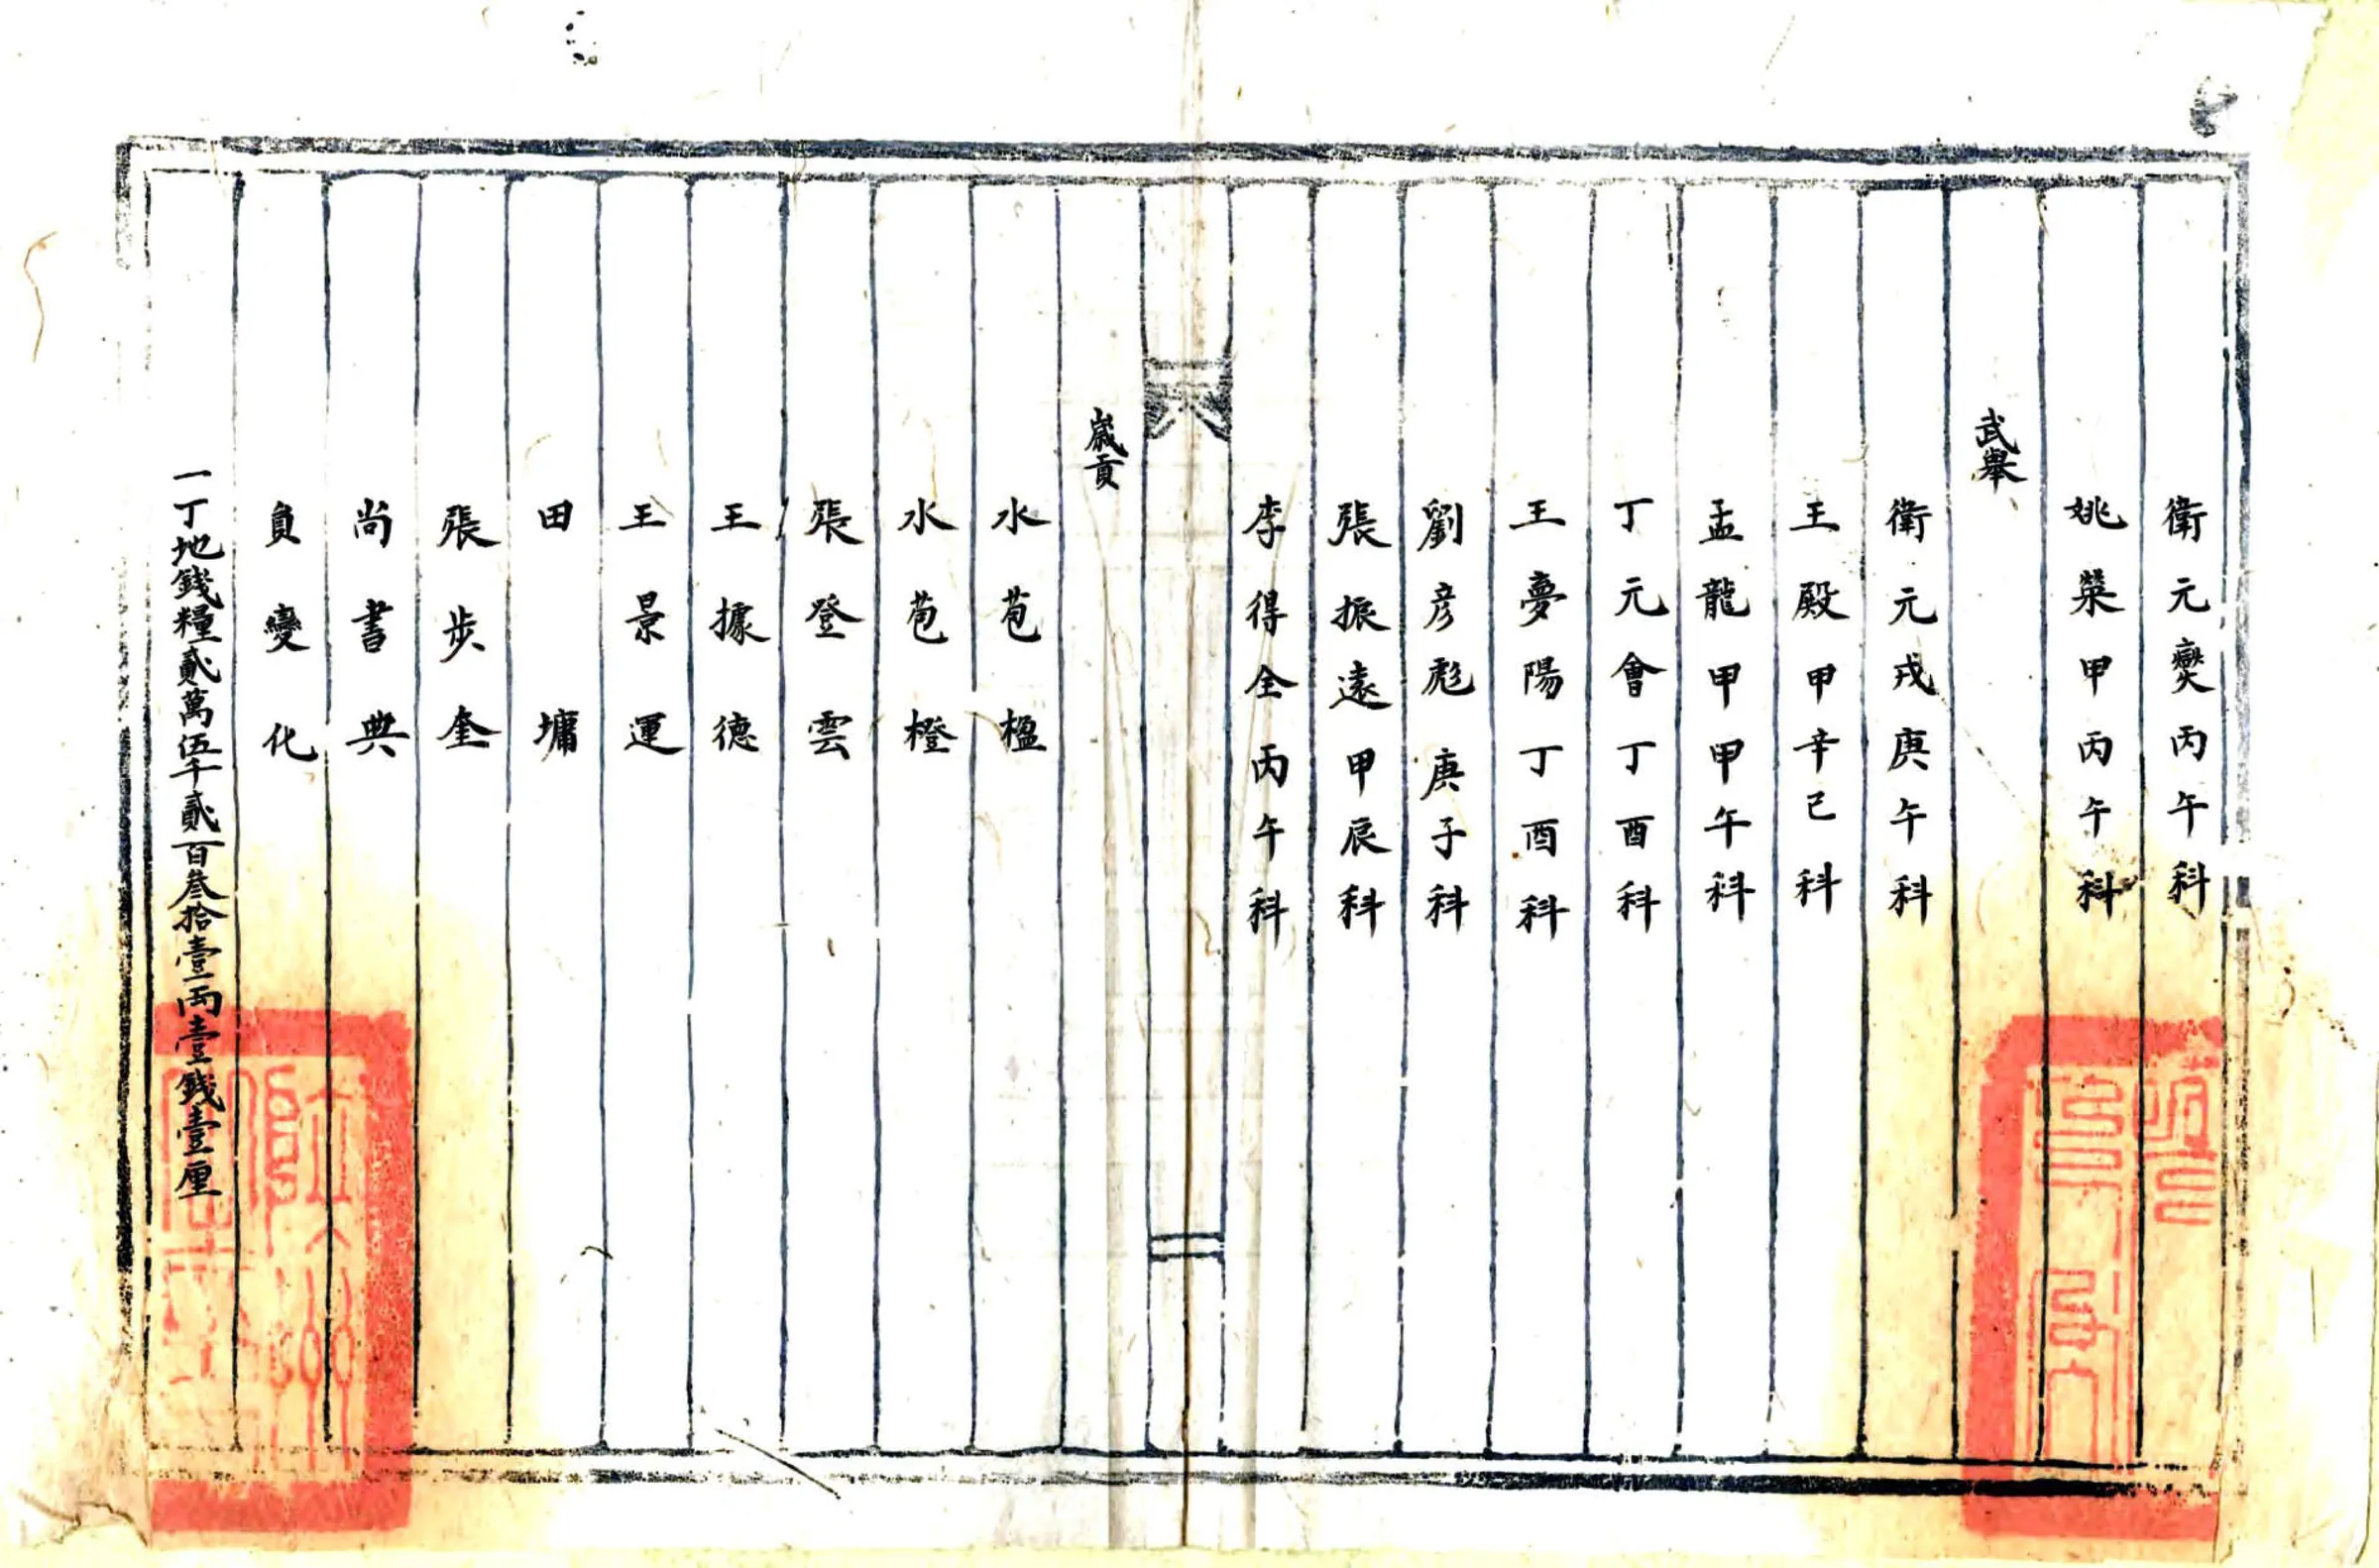 衛元爕丙午科
姚榮甲丙午科
武舉
衛元戎庚午科
王殿甲辛已科
孟龍甲甲午科
丁元會丁酉科
王夢陽丁酉科
劉彥彪庚子科
張振遠甲辰科
李得全丙午科
歲貢
水苞楹
水苞橙
張登雲
王據德
王景運
田墉
張步奎
尚書典
負變化
一丁地錢糧貳萬伍千貳百叁拾壹兩壹錢壹厘